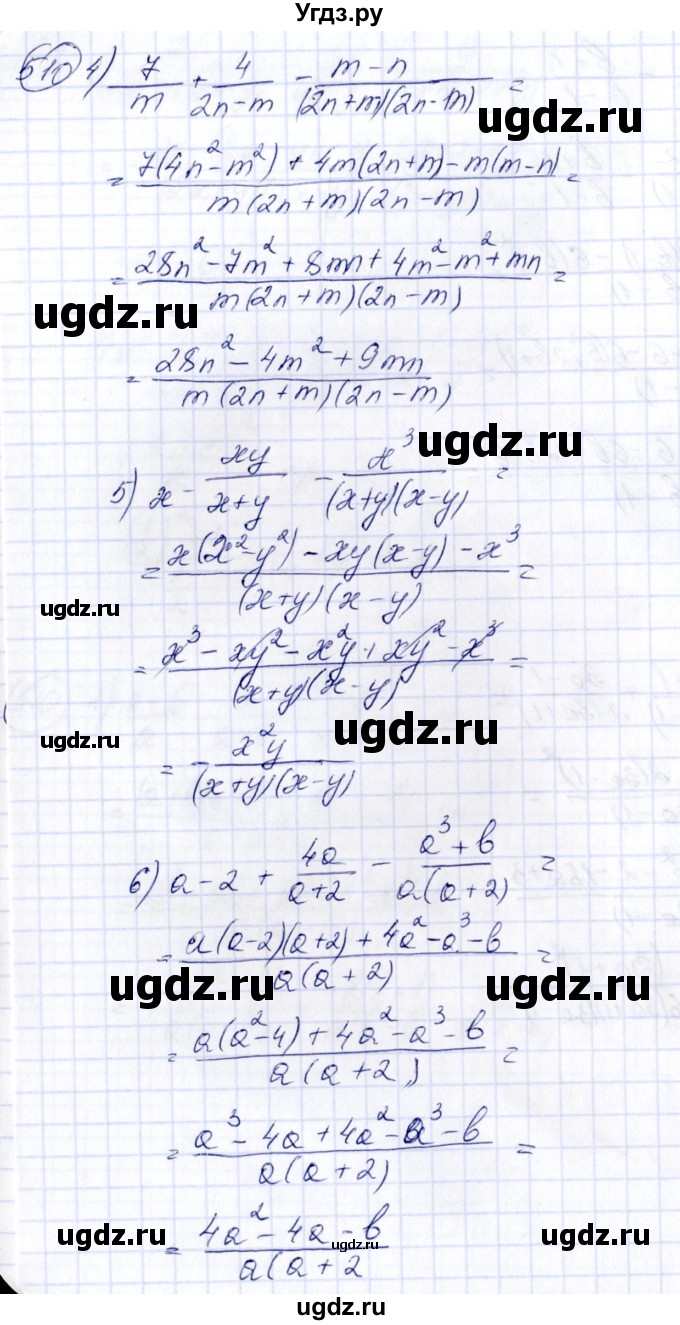 Угдз.ру
510 4) 7/m + 4/(2n-m) - (m-n)/((2n+m)(2n-m)) =
ugdz.ru
= (7(4n²-m²) + 4m(2n+m) - m(m-n))/(m(2n+m)(2n-m)) =
= (28n² - 7m² + 8mn + 4m² - m² + mn)/(m(2n+m)(2n-m)) =
ugdz.ru
= (28n² - 4m² + 9mn)/(m(2n+m)(2n-m))
ugdz.ru
5) x - xy/(x+y) - x³/((x+y)(x-y)) =
= (x(x²-y²) - xy(x-y) - x³)/((x+y)(x-y)) =
ugdz.ru ugdz.ru
= (x³ - xy² - x²y + xy² - x³)/((x+y)(x-y)) =
ugdz.ru ugdz.ru
= - x²y/((x+y)(x-y))
6) a - 2 + 4a/(a+2) - (a³+b)/(a(a+2)) =
= (a(a-2)(a+2) + 4a² - a³ - b)/(a(a+2)) =
ugdz.ru ugdz.ru
= (a(a²-4) + 4a² - a³ - b)/(a(a+2)) =
= (a³ - 4a + 4a² - a³ - b)/(a(a+2)) =
ugdz.ru ugdz.ru ugdz.ru
= (4a² - 4a - b)/(a(a+2
ugdz.ru